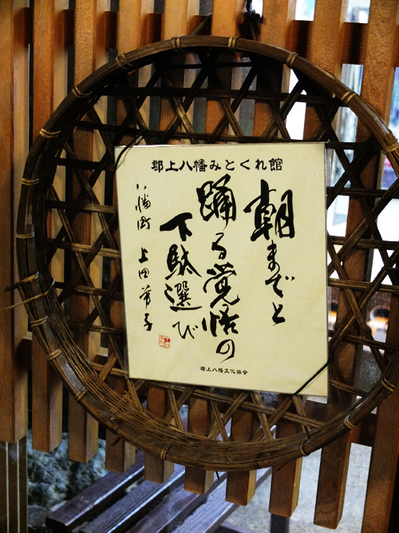 郡上八幡みとくれ館
朝までと
踊る覚悟の
下駄選び
八幡町 上田
郡上八幡文化協会